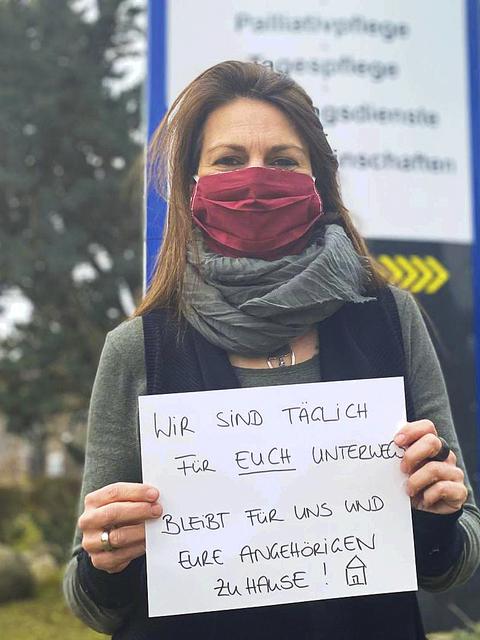 Palliativpflege
Tagespflege
gsdienste
inschaften
WIR SIND TÄGLICH
FÜR EUCH UNTERWEGS
BLEIBT FÜR UNS UND
EURE ANGEHÖRIGEN
ZU HAUSE !